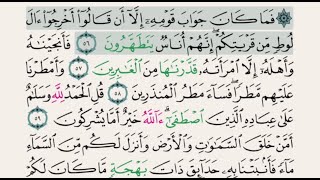 فَمَا كَانَ جَوَابَ قَوْمِهِۦٓ إِلَّآ أَن قَالُوٓا۟ أَخْرِجُوٓا۟ ءَالَ
لُوطٍ مِّن قَرْيَتِكُمْ ۖ إِنَّهُمْ أُنَاسٌ يَتَطَهَّرُونَ ٥٦ فَأَنجَيْنَٰهُ
وَأَهْلَهُۥٓ إِلَّا ٱمْرَأَتَهُۥ قَدَّرْنَٰهَا مِنَ ٱلْغَٰبِرِينَ ٥٧ وَأَمْطَرْنَا
عَلَيْهِم مَّطَرًا ۖ فَسَآءَ مَطَرُ ٱلْمُنذَرِينَ ٥٨ قُلِ ٱلْحَمْدُ لِلَّهِ وَسَلَٰمٌ
عَلَىٰ عِبَادِهِ ٱلَّذِينَ ٱصْطَفَىٰٓ ۗ ءَآللَّهُ خَيْرٌ أَمَّا يُشْرِكُونَ ٥٩
أَمَّنْ خَلَقَ ٱلسَّمَٰوَٰتِ وَٱلْأَرْضَ وَأَنزَلَ لَكُم مِّنَ ٱلسَّمَآءِ
مَآءً فَأَنۢبَتْنَا بِهِۦ حَدَآئِقَ ذَاتَ بَهْجَةٍ مَّا كَانَ لَكُمْ